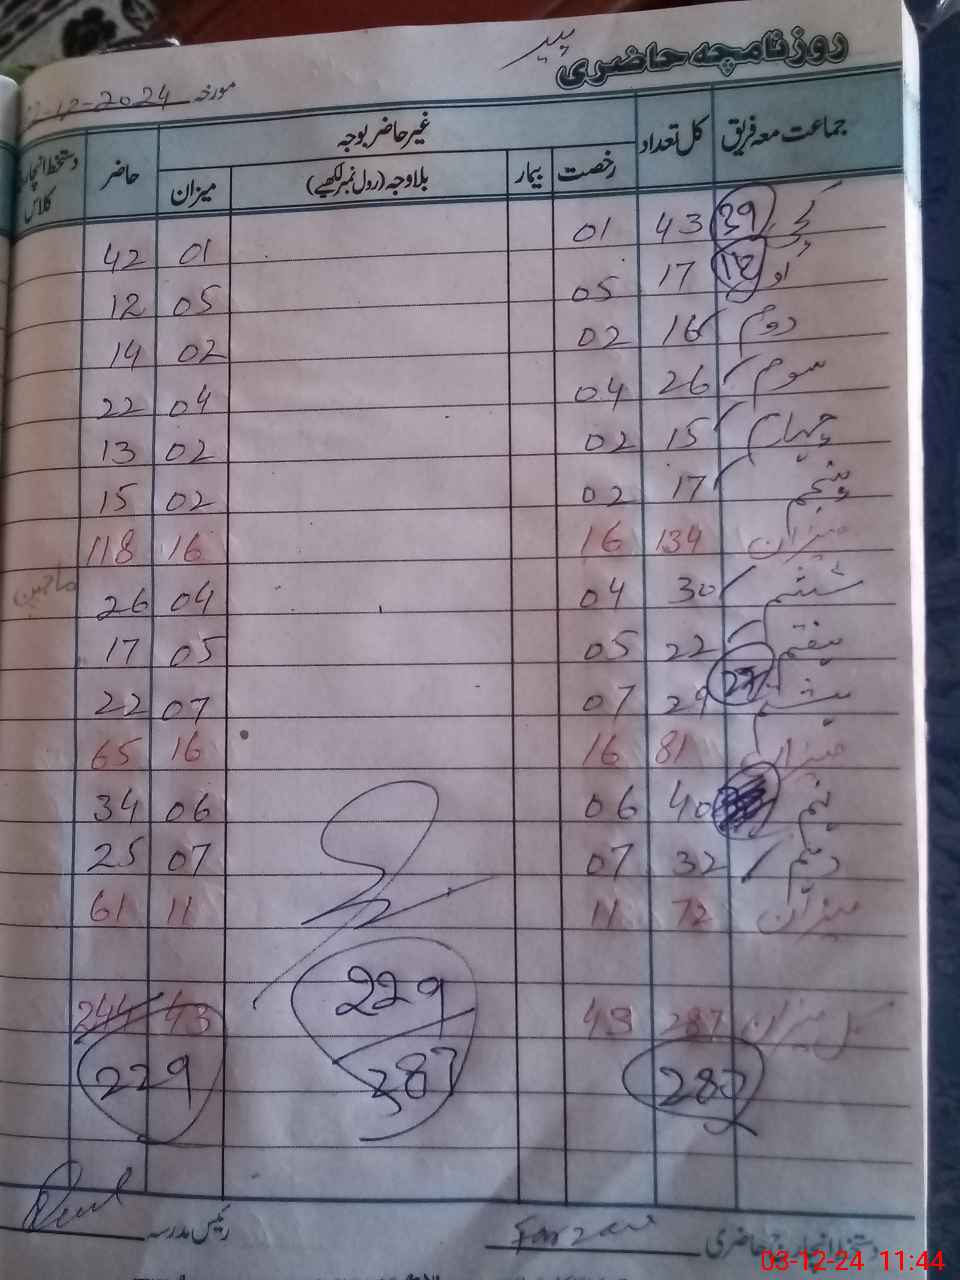 روزنامچہ حاضری پیر
مورخہ 2-12-2024
جماعت معہ فریق کل تعداد غیر حاضر بوجہ حاضر دستخط انچارج کلاس
رخصت بیمار بلاوجہ (رول نمبر لکھیے) میزان
کچی 39 43 01 01 42
اول 12 17 05 05 12
دوم 16 02 02 14
سوم 26 04 04 22
چہارم 15 02 02 13
پنجم 17 02 02 15
میزان 134 16 16 118
ششم 30 04 04 26
ہفتم 22 05 05 17
ہشتم 27 29 07 07 22
میزان 81 16 16 65
نہم 40 06 06 34
دہم 32 07 07 25
میزان 72 11 11 61
229
کل میزان 287 43 43 244
287 287 229
دستخط انچارج حاضری Farzana رئیس مدرسہ
03-12-24 11:44